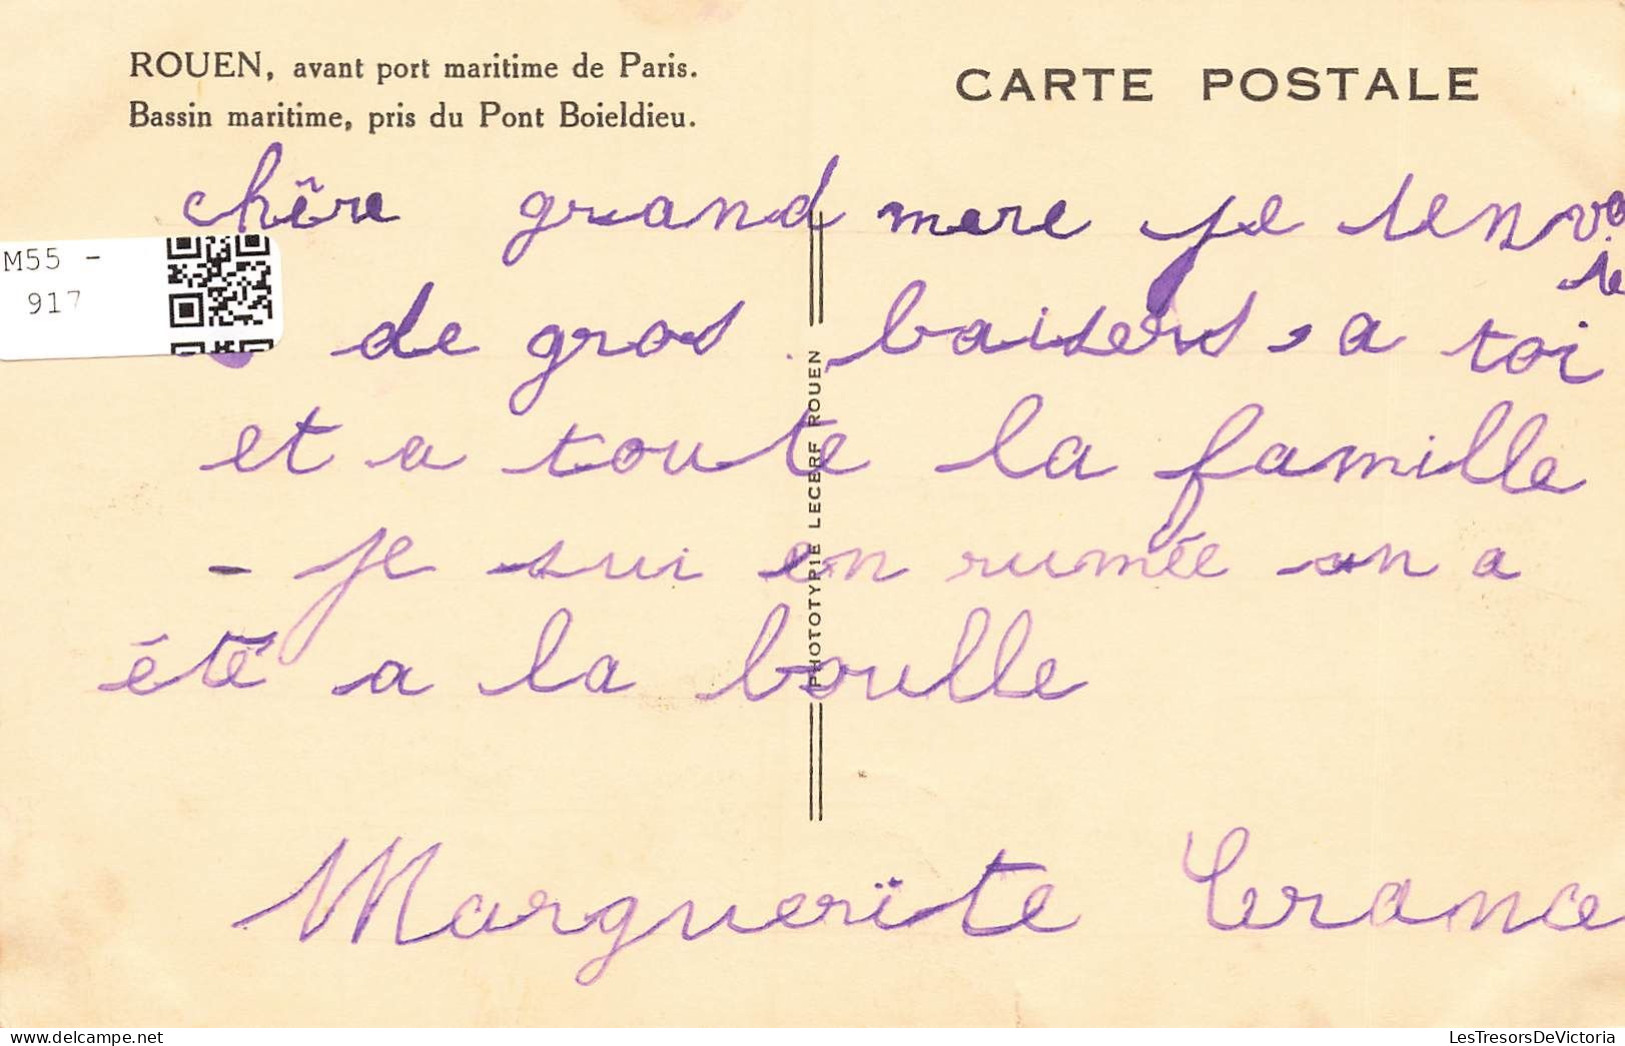 ROUEN, avant port maritime de Paris.
Bassin maritime, pris du Pont Boieldieu.
CARTE POSTALE
chêre grand mere je tenvo
ie
de gros baisers, a toi
et a toute la famille
- je sui en rumée on a
été a la boulle
Marguerïte
M55 -
917
PHOTOTYPIE LECERF ROUEN
LesTresorsDeVictoria